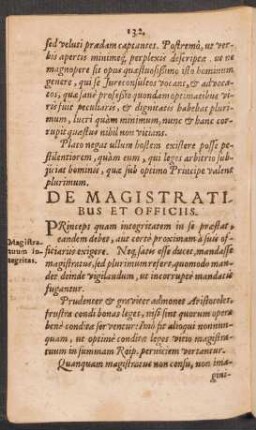 132.
sed veluti prædam captantes. Postremò, ut ver-
bis apertis minimeq; perplexè descriptæ, ut ne
magnopere sit opus quæstuosissimo isto hominum
genere, qui se Jureconsultos vocant, & advoca-
tos, quæ sanè professio quondam optimatibus vi-
ris fuit peculiaris, & dignitatis habebat pluri-
mum, lucri quàm minimum, nunc & hanc cor-
rupit quæstus nihil non vitians.
Plato negat ullum hostem existere posse pe-
stilentiorem, quàm eum, qui leges arbitrio sub-
jiciat hominis, quæ sub optimo Principe valent
plurimum.
DE MAGISTRATI-
BUS ET OFFICIIS.
Magistra-
tuum in-
tegritas.
PRinceps quam integritatem in se præstat,
eandem debet, aut certè proximam à suis of-
ficiariis exigere. Neq; satis esse ducet, mandasse
magistratus, sed plurimum refert, quomodo man-
det deinde vigilandum, ut incorruptè mandatis
fugantur.
Prudenter & graviter admonet Aristoteles,
frustra condi bonas leges, nisi sint quorum opera
benè conditæ serventur: Imò fit alioqui nonnun-
quam, ut optimè conditæ leges vitio magistra-
tuum in summam Reip. perniciem vertantur.
Quanquam magistratus non censu, non ima-
gini-